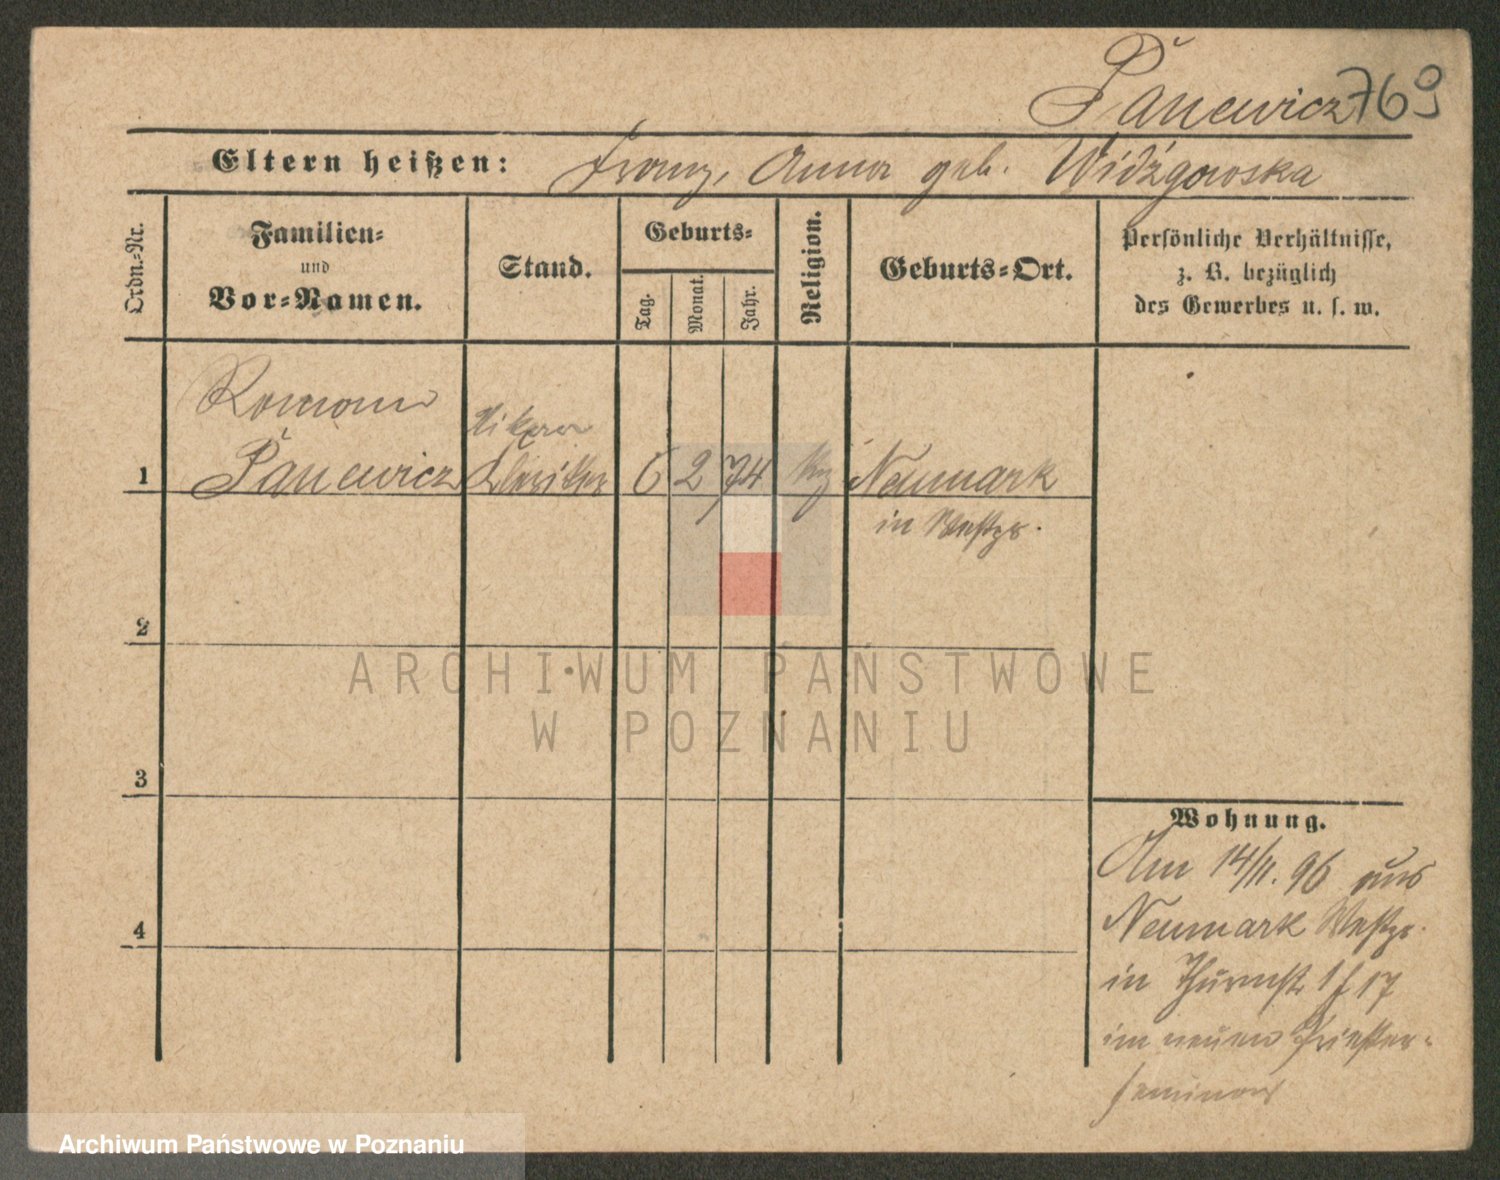 Panewicz 769
Eltern heißen: Franz, Anna geb. Widźgowska
Ordn.-Nr.
Familien-
und
Vor-Namen.
Stand.
Geburts-
Tag. Monat. Jahr.
Religion.
Geburts-Ort.
Persönliche Verhältnisse,
z. B. bezüglich
des Gewerbes u. s. w.
Roman
1 Panewicz Kleriker 6 2 74 Neumark
in Westpr.
2
3
4
Wohnung.
Am 14/11. 96 aus
Neumark Westpr.
in Thurmstr. 17
im neuen Priester-
seminar
ARCHIWUM PAŃSTWOWE
W POZNANIU
Archiwum Państwowe w Poznaniu